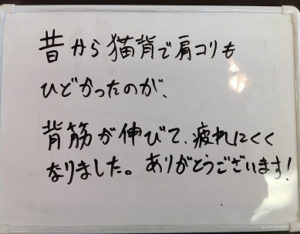 昔から猫背で肩コリも
ひどかったのが、
背筋が伸びて、疲れにくく
なりました。ありがとうございます!